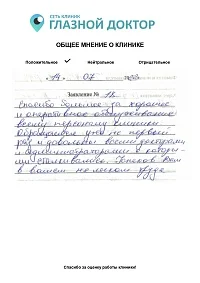 СЕТЬ КЛИНИК
ГЛАЗНОЙ ДОКТОР
ОБЩЕЕ МНЕНИЕ О КЛИНИКЕ
Положительное ✓ Нейтральное Отрицательное
14 07
Заявление № 12
Спасибо большое за хорошее
и оперативное обслуживание
всему персоналу клиники
Обращаемся уже не первый
раз и довольны всеми докторами
и администраторами с которы-
ми сталкиваемся. Успехов Вам
в вашем нелегком труде
Спасибо за оценку работы клиники!